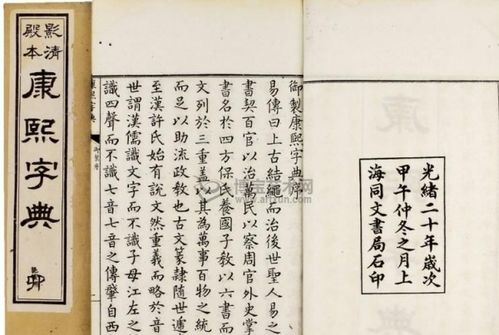 影清
殿本
康熙字典
光緒二十年歲次
甲午仲冬之月上
海同文書局石印
御製康熙字典序
易傳曰上古結繩而治後世聖人易之
書契百官以治萬民以察周官外史掌
書名於四方保氏養國子教以六書而
文列於三重蓋以其為萬事百物之統
而足以助流政教也古文篆隸隨世遞
至漢許氏始有說文然重義而略於音
世謂漢儒識文字而不識子母江左之
識四聲而不識七音七音之傳肇自西
康熙字典